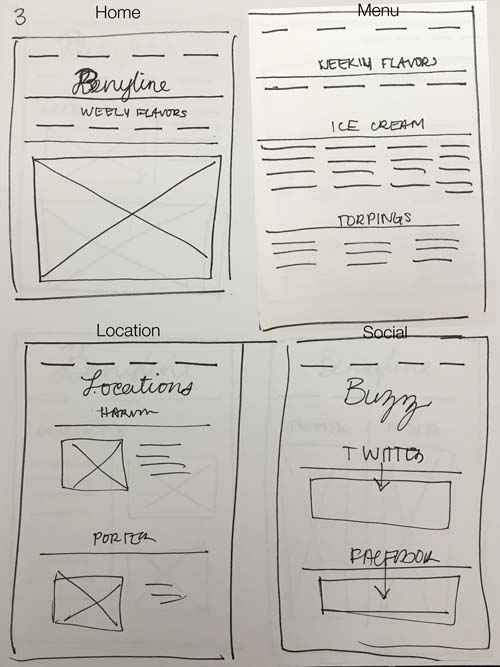 3
Home
Benyline
WEELY FLAVORS
Menu
WEEKLY FLAVORS
ICE CREAM
TOPPINGS
Location
Locations
PORTER
Social
Buzz
TWITTER
FACEBOOK